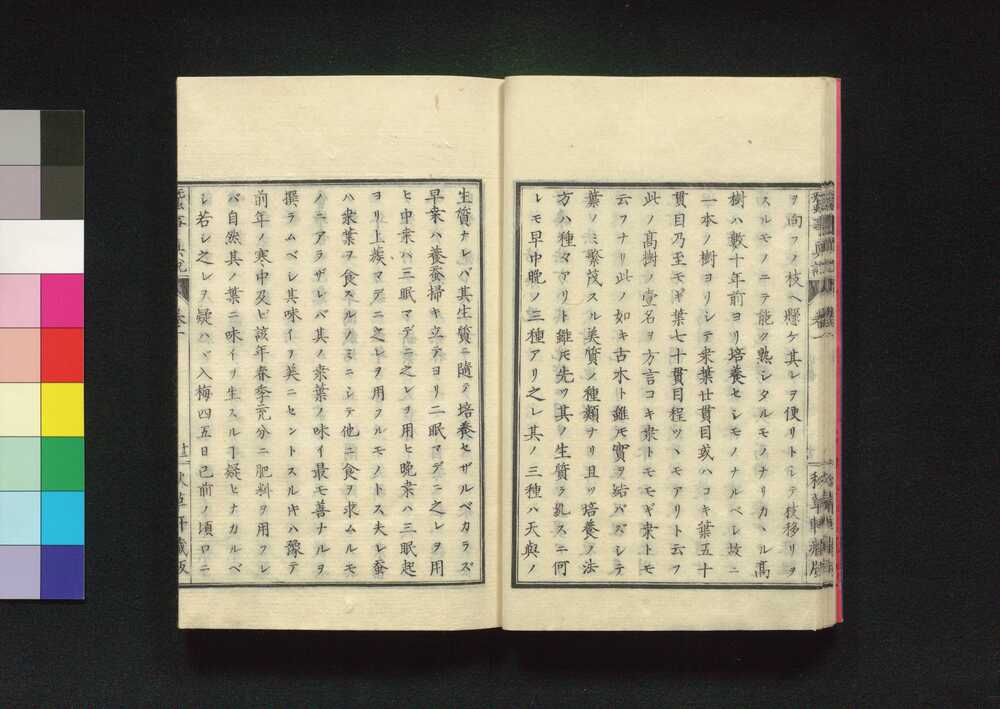 ヲ向フノ枝ヘ懸ケ其レヲ便リトシテ枝移リヲ
スルモノニテ能ク熟シタルモノナリカヽル高
樹ハ數十年前ヨリ培養セシモノナルベシ故ニ
一本ノ樹ヨリシテ桒葉廿貫目或ハコキ葉五十
貫目乃至モギ葉七十貫目程ツヽモアリト云フ
此ノ高樹ノ壹名ヲ方言コキ桒トモモギ桒トモ
云フナリ此ノ如キ古木ト雖𪜈實ヲ結バズシテ
葉ノミ繁茂スル美質ノ種類ナリ且ツ培養ノ法
方ハ種々アリト雖𪜈先ツ其ノ生質ヲ糺スニ何
レモ早中晩ノ三種アリ之レ其ノ三種ハ天與ノ
生質ナレバ其生質ニ隨テ培養セザルベカラズ
早桒ハ養蚕掃キ立テヨリ二眠マデニ之レヲ用
ヒ中桒ハ三眠マデニ之レヲ用ヒ晩桒ハ三眠起
ヨリ上蔟マデニ之レヲ用フルモノトス夫レ蚕
ハ桒葉ヲ食スルノミニシテ他ニ食ヲ求ムルモ
ノニアラザレバ其ノ桒葉ノ味イ最モ善ナルヲ
撰ラムベシ其味イヲ美ニセントスルキハ豫テ
前年ノ寒中及ビ該年春季充分ニ肥料ヲ用フレ
バ自然其ノ葉ニ味イヲ生スルヿ疑ヒナカルベ
シ若シ之レヲ疑ハヾ入梅四五日已前ノ頃ロニ